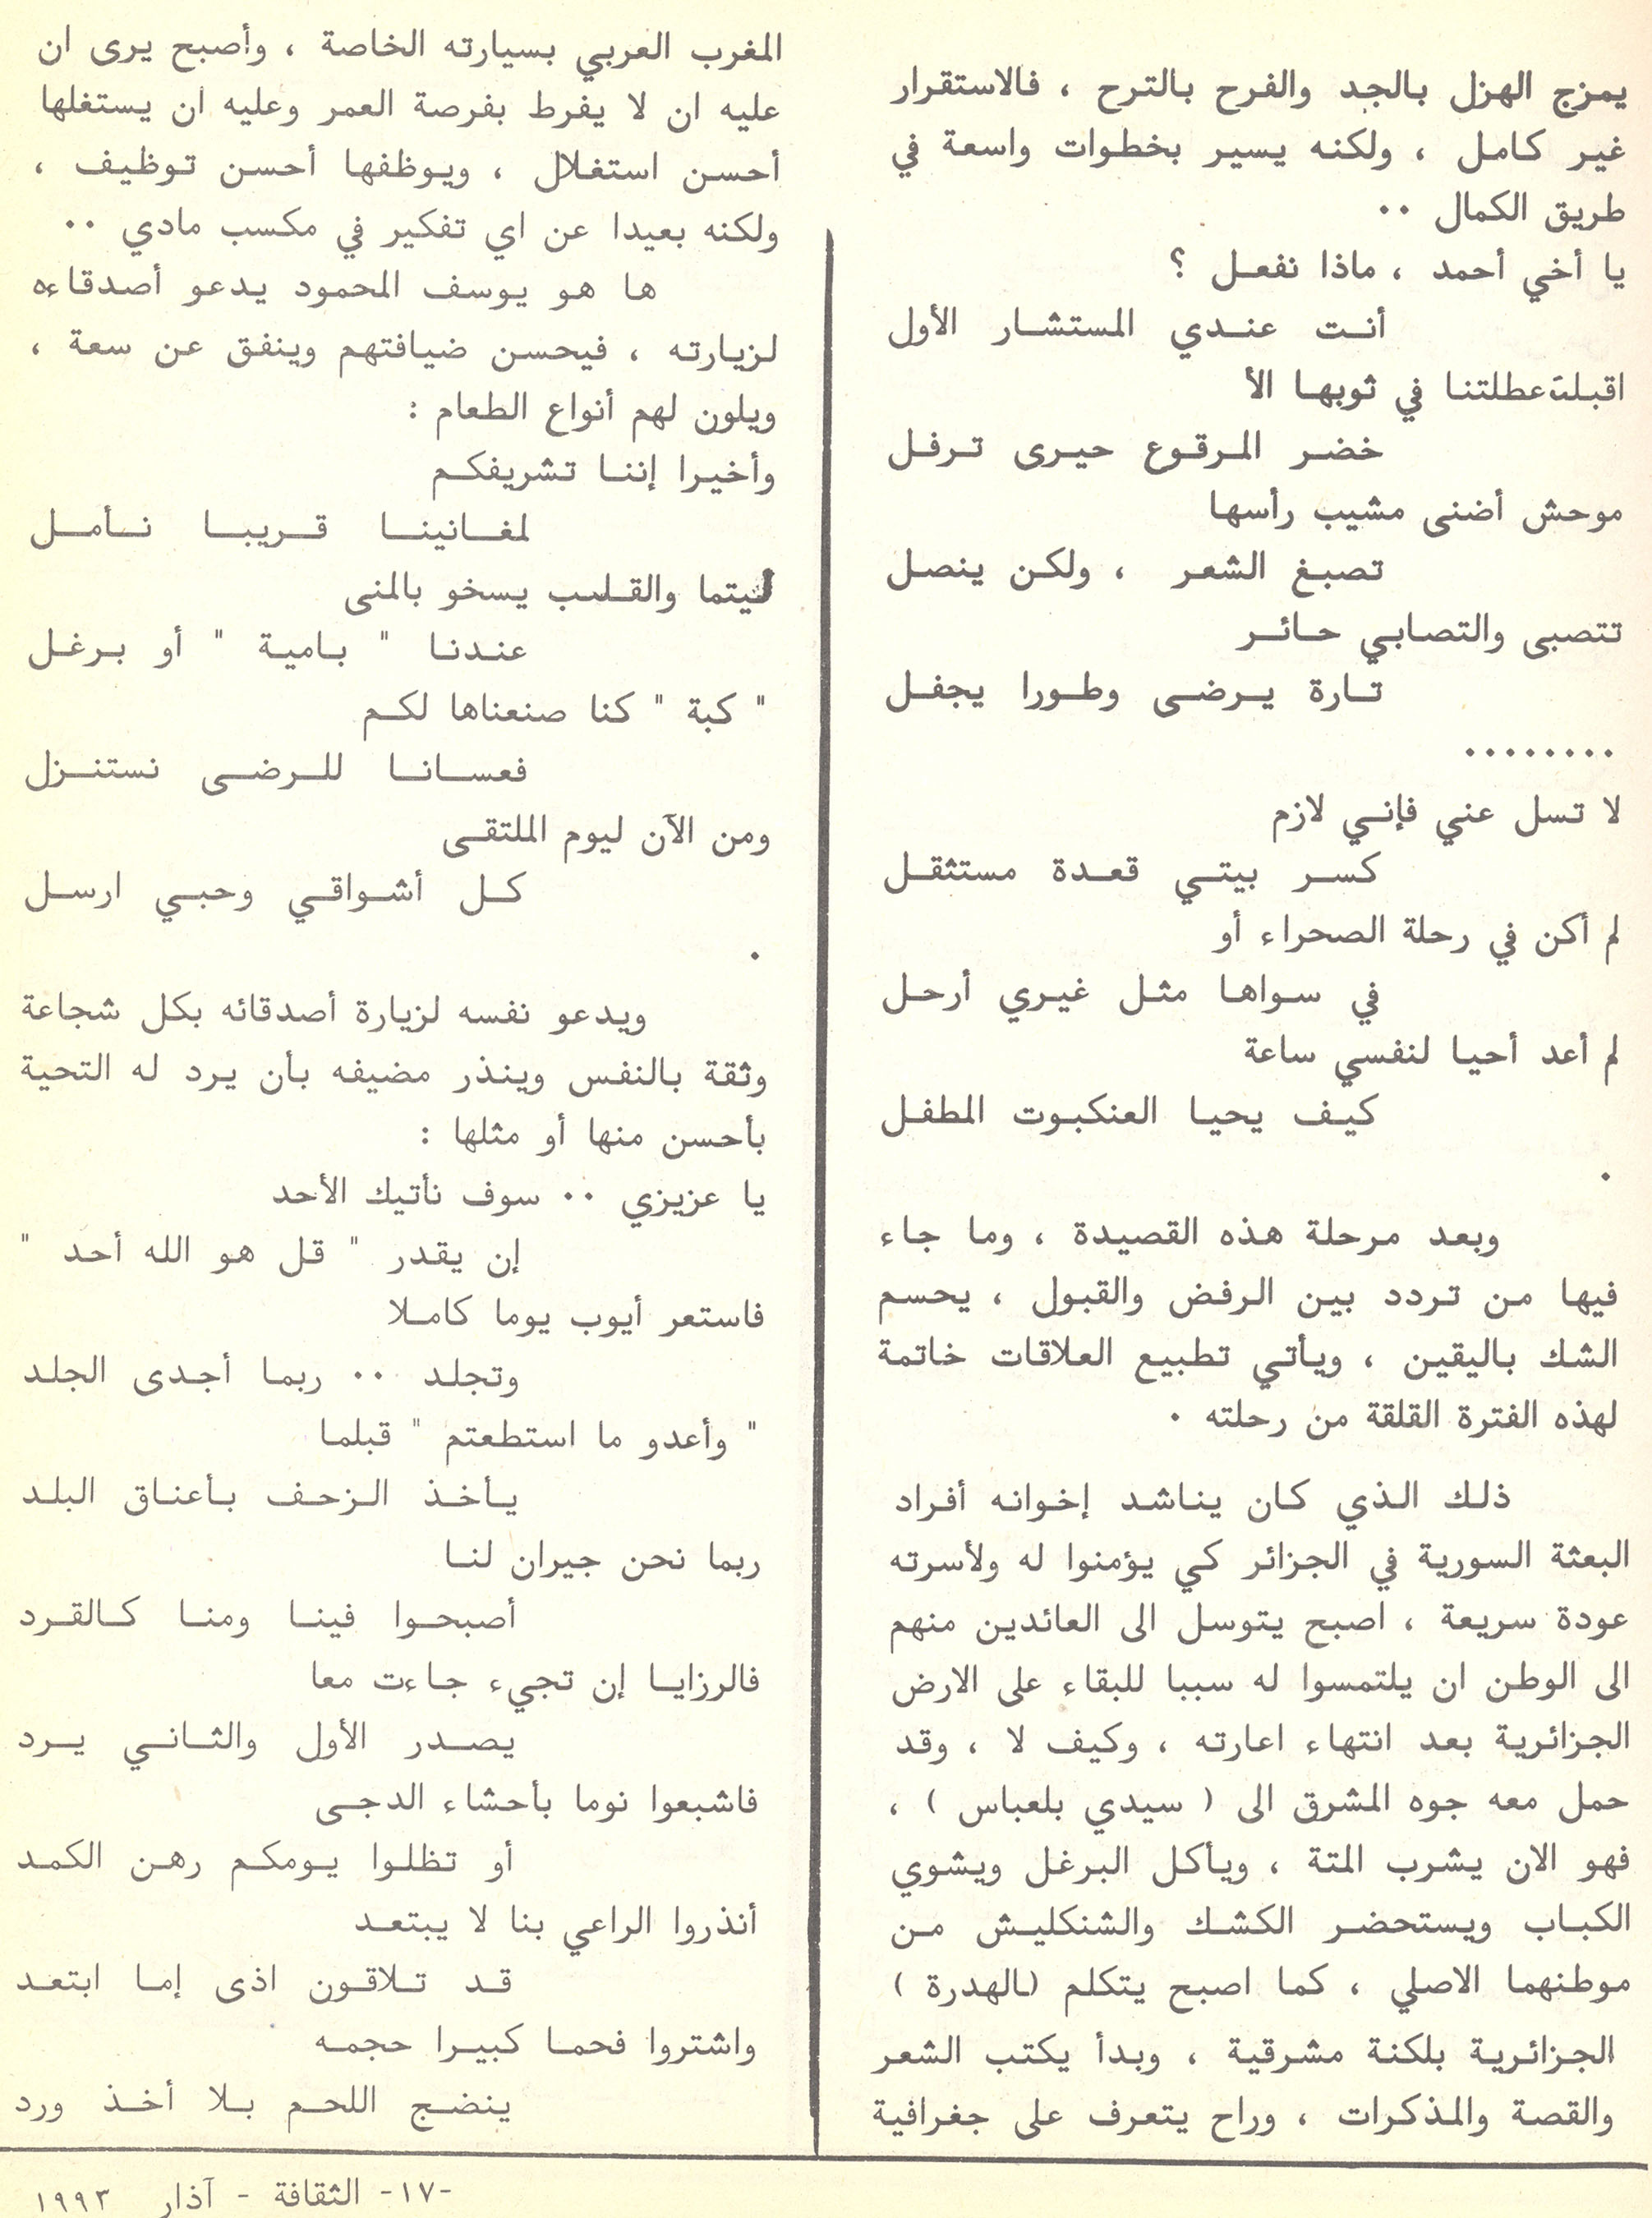 يمزج الهزل بالجد والفرح بالترح ، فالاستقرار
غير كامل ، ولكنه يسير بخطوات واسعة في
طريق الكمال ..
يا أخي أحمد ، ماذا نفعل ؟
أنت عندي المستشار الأول
اقبلت عطلتنا في ثوبها الأ
خضر المرقوع حيرى ترفل
موحش أضنى مشيب رأسها
تصبغ الشعر ، ولكن ينصل
تتصبى والتصابي حائر
تارة يرضى وطورا يجفل
........
لا تسل عني فإني لازم
كسر بيتي قعدة مستثقل
لم أكن في رحلة الصحراء أو
في سواها مثل غيري أرحل
لم أعد أحيا لنفسي ساعة
كيف يحيا العنكبوت المطفل
.
وبعد مرحلة هذه القصيدة ، وما جاء
فيها من تردد بين الرفض والقبول ، يحسم
الشك باليقين ، ويأتي تطبيع العلاقات خاتمة
لهذه الفترة القلقة من رحلته .
ذلك الذي كان يناشد إخوانه أفراد
البعثة السورية في الجزائر كي يؤمنوا له ولأسرته
عودة سريعة ، اصبح يتوسل الى العائدين منهم
الى الوطن ان يلتمسوا له سببا للبقاء على الارض
الجزائرية بعد انتهاء اعارته ، وكيف لا ، وقد
حمل معه جوه المشرق الى ( سيدي بلعباس ) ،
فهو الان يشرب المتة ، ويأكل البرغل ويشوي
الكباب ويستحضر الكشك والشنكليش من
موطنهما الاصلي ، كما اصبح يتكلم (بالهدرة )
الجزائرية بلكنة مشرقية ، وبدأ يكتب الشعر
والقصة والمذكرات ، وراح يتعرف على جغرافية
المغرب العربي بسيارته الخاصة ، وأصبح يرى ان
عليه ان لا يفرط بفرصة العمر وعليه ان يستغلها
أحسن استغلال ، ويوظفها أحسن توظيف ،
ولكنه بعيدا عن اي تفكير في مكسب مادي ..
ها هو يوسف المحمود يدعو أصدقاءه
لزيارته ، فيحسن ضيافتهم وينفق عن سعة ،
ويلون لهم أنواع الطعام :
وأخيرا إننا تشريفكم
لمغانينا قريبا نأمل
ليتما والقلب يسخو بالمنى
عندنا " بامية " أو برغل
" كبة " كنا صنعناها لكم
فعسانا للرضى نستنزل
ومن الآن ليوم الملتقى
كل أشواقي وحبي ارسل
.
ويدعو نفسه لزيارة أصدقائه بكل شجاعة
وثقة بالنفس وينذر مضيفه بأن يرد له التحية
بأحسن منها أو مثلها :
يا عزيزي .. سوف نأتيك الأحد
إن يقدر " قل هو الله أحد "
فاستعر أيوب يوما كاملا
وتجلد .. ربما أجدى الجلد
" وأعدو ما استطعتم " قبلما
يأخذ الزحف بأعناق البلد
ربما نحن جيران لنا
أصبحوا فينا ومنا كالقرد
فالرزايا إن تجيء جاءت معا
يصدر الأول والثاني يرد
فاشبعوا نوما بأحشاء الدجى
أو تظلوا يومكم رهن الكمد
أنذروا الراعي بنا لا يبتعد
قد تلاقون اذى إما ابتعد
واشتروا فحما كبيرا حجمه
ينضج اللحم بلا أخذ ورد
-١٧- الثقافة - آذار ١٩٩٣